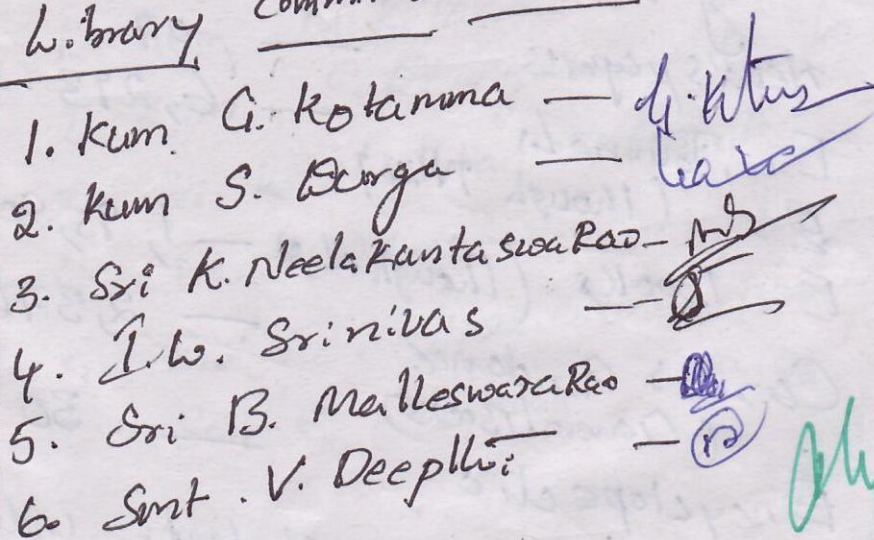 Library
1. Kum. G. Kotamma — G. Kt
2. Kum S. Durga —
3. Sri K. Neelakantaswa Rao -
4. I. W. Srinivas —
5. Sri B. Malleswara Rao -
6. Smt. V. Deepthi —